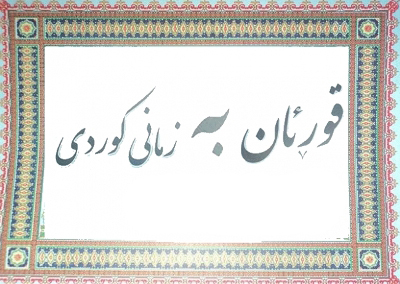 قورئان بە زمانی کوردی